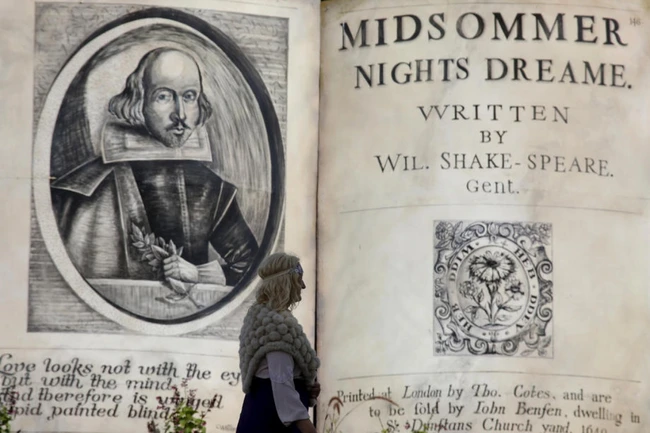 Love looks not with the ey
but with the mind
And therefore is
painted blind
146
MIDSOMMER
NIGHTS DREAME.
WRITTEN
BY
WIL. SHAKE-SPEARE.
Gent.
Printed at London by Tho. Cotes, and are
to be sold by Iohn Benson, dwelling in
St Dunstans Church yard, 1640